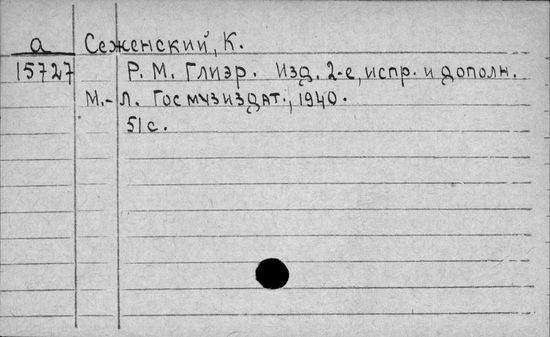 а Сеженский, К.
15727 Р. М. Глиэр. Изд. 2-е, испр. и дополн.
М.-Л. Госмузиздат., 1940.
51 с.